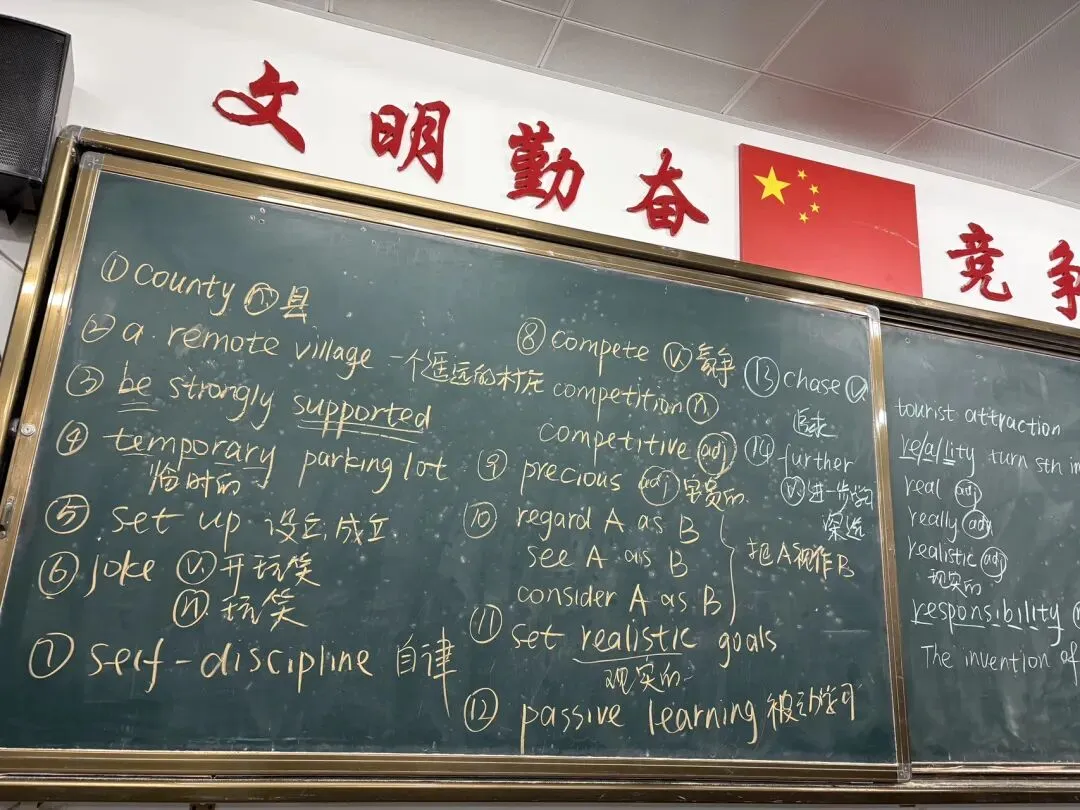 文明勤奋 竞争
① county n. 县
② a remote village 一个遥远的村庄
③ be strongly supported
④ temporary parking lot
临时的
⑤ set up 设立;成立
⑥ joke v. 开玩笑
n. 玩笑
⑦ self-discipline 自律
⑧ compete v. 竞争
competition n.
competitive adj
⑨ precious adj 宝贵的
⑩ regard A as B
see A as B
consider A as B
把A视作B
⑪ set realistic goals
现实的
⑫ passive learning 被动学习
⑬ chase v.
追求
⑭ further
v. 进一步
深造
tourist attraction
reallity turn sth in
real adj
really adv
realistic adj
现实的
responsibility
The invention of